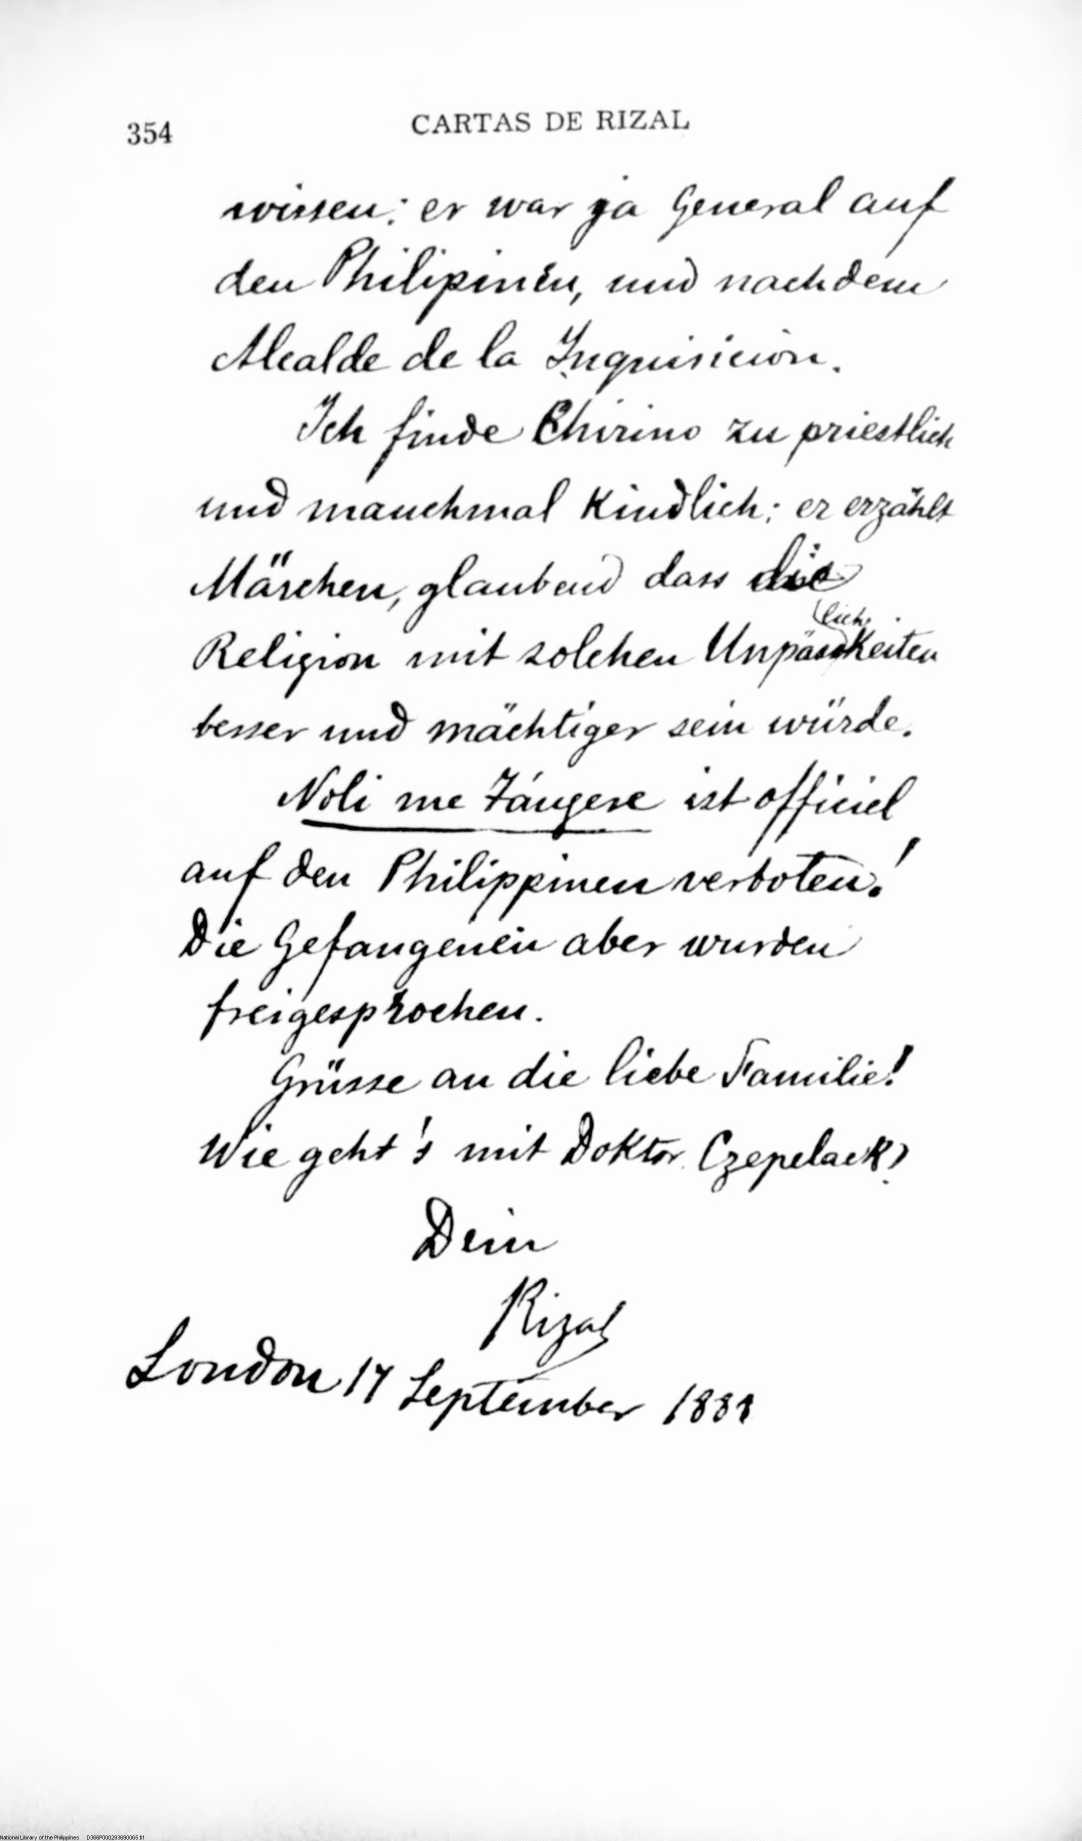 354
CARTAS DE RIZAL
wissen; er war ja General auf
den Philipinen, und nachdem
Alcalde de la Inquisicion.
Ich finde Chirino zu priestlich
und manchmal kindlich; er erzählt
Märchen, glaubend dass die
lich
Religion mit solchen Unpässkeiten
besser und mächtiger sein würde.
Noli me Tángere ist officiel
auf den Philippinen verboten!
Die Gefangenen aber wurden
freigesprochen.
Grüsse an die liebe Familie!
Wie geht's mit Doktor Czepelack?
Dein
Rizal
London 17 September 1888
National Library of the Philippines